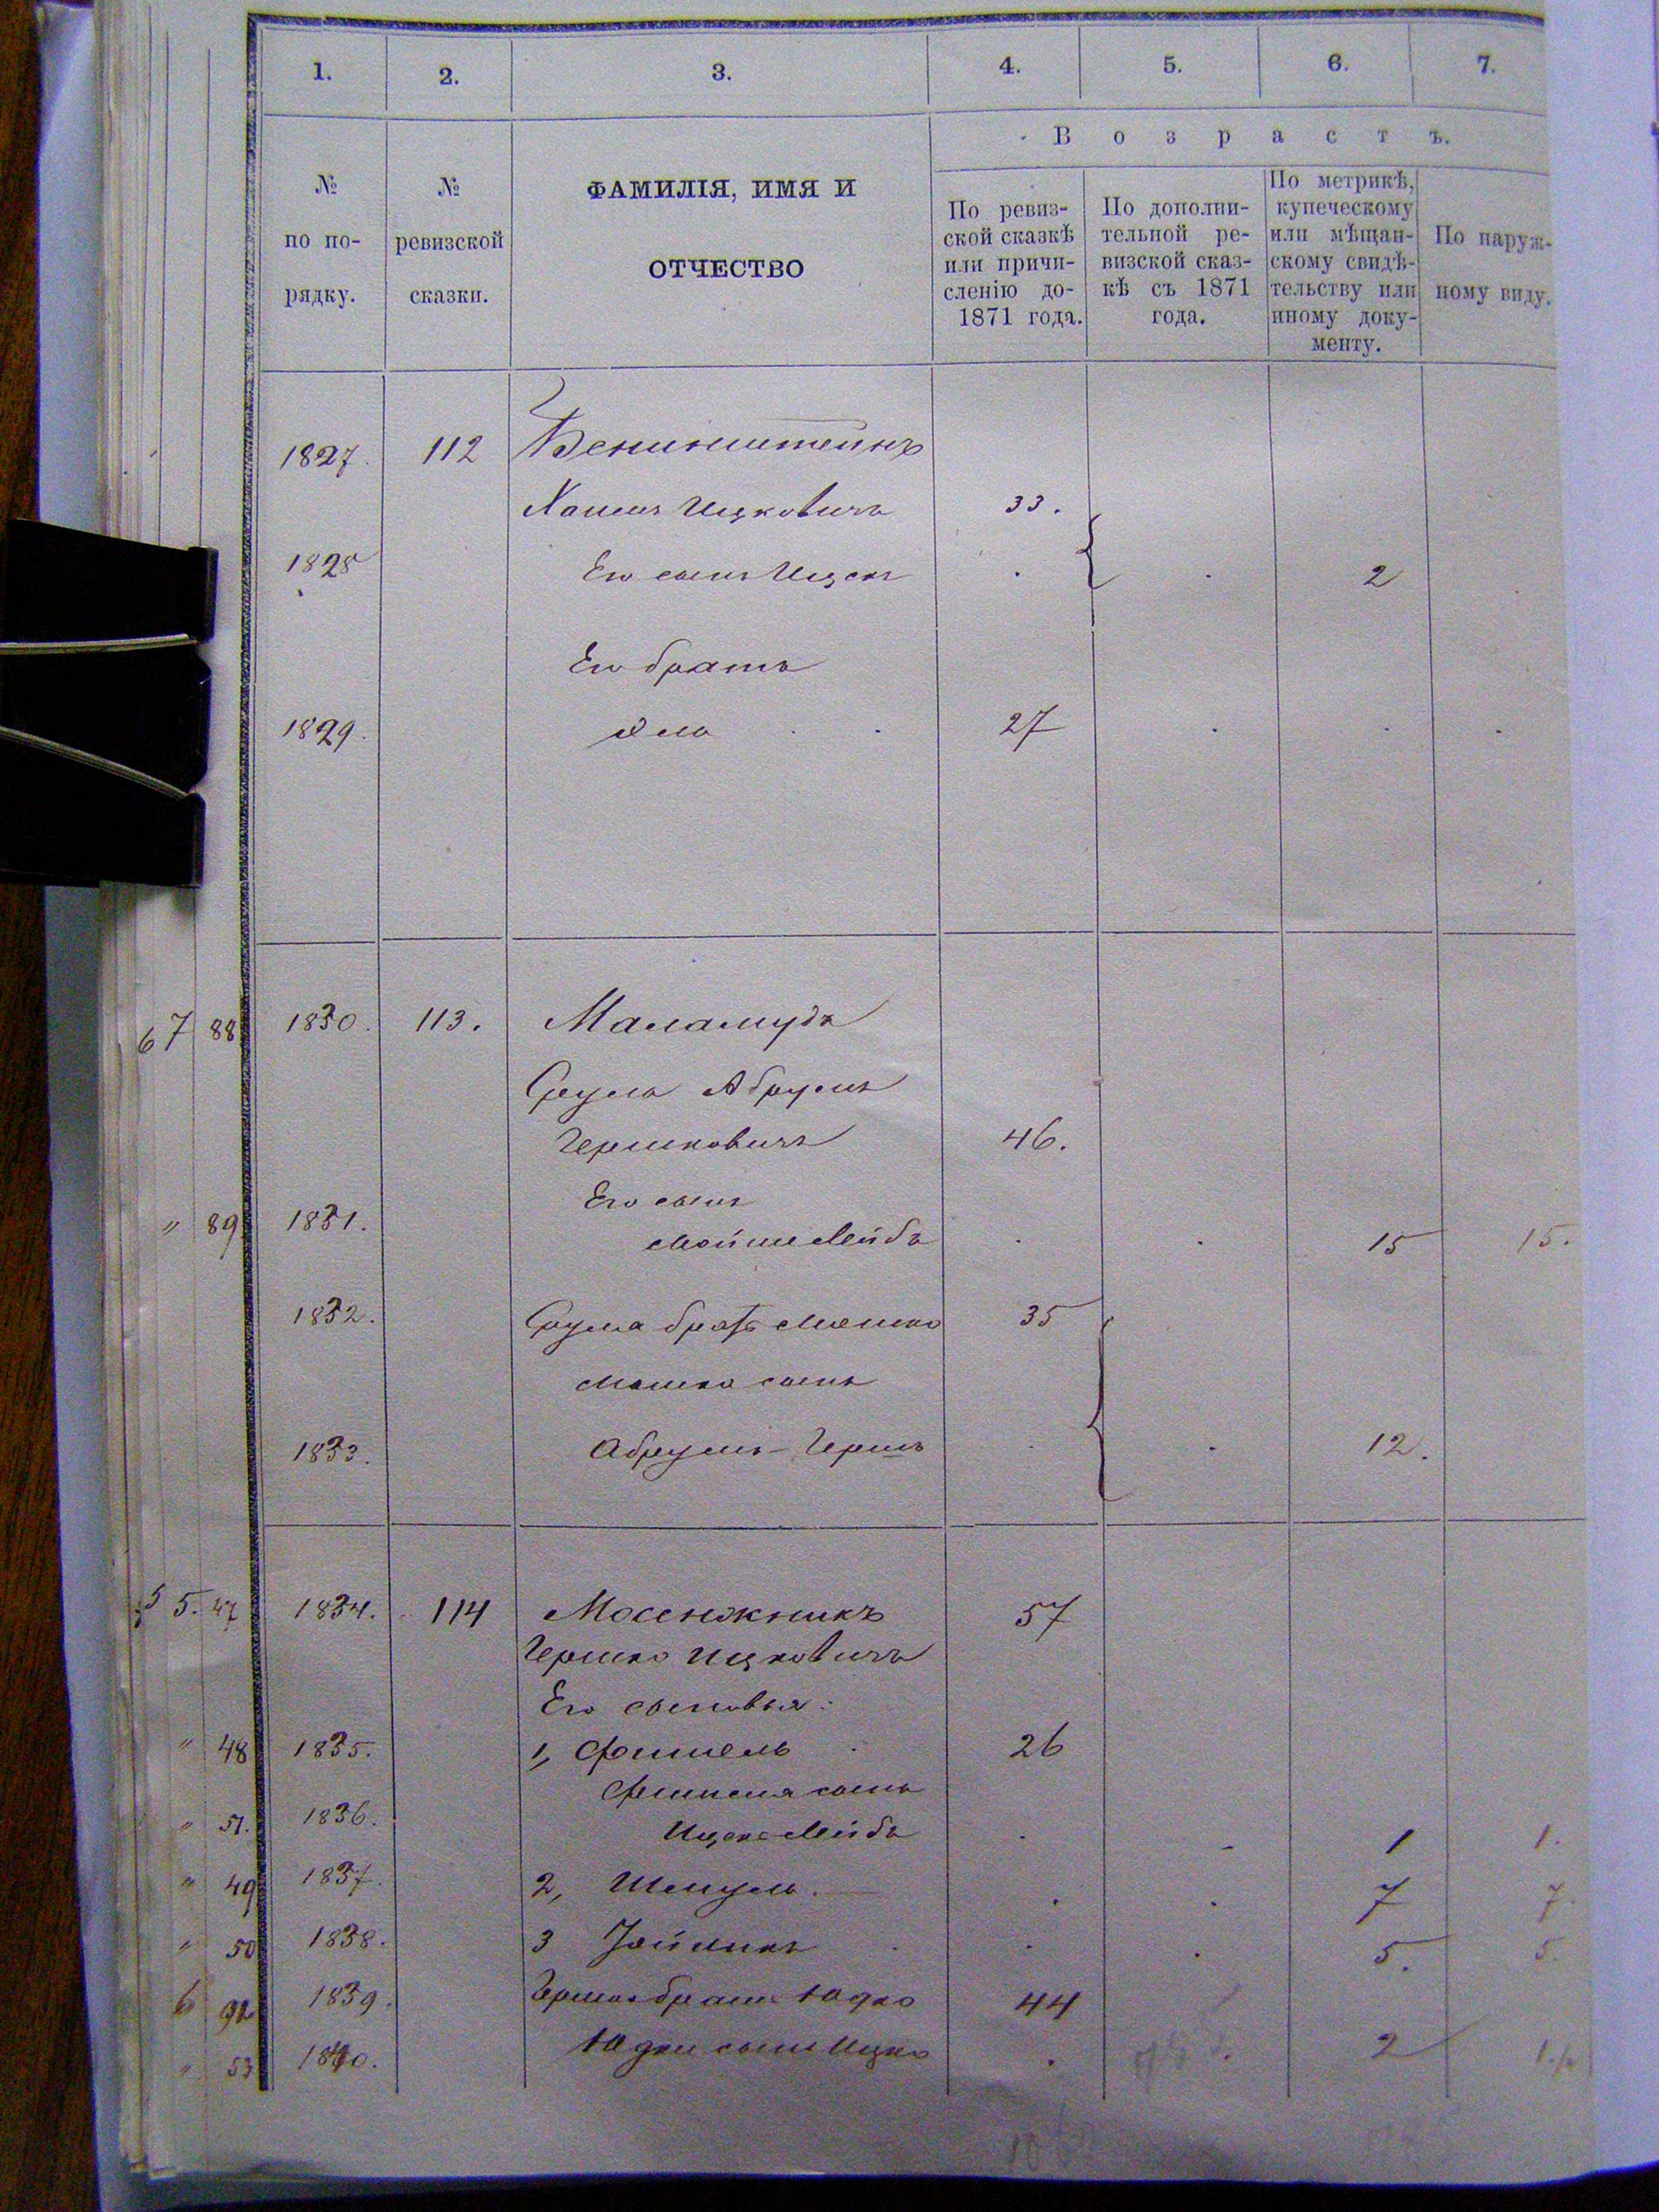 1. 2. 3. 4. 5. 6. 7.
Возрастъ.
№ по порядку.
№ ревизской сказки.
ФАМИЛІЯ, ИМЯ И
ОТЧЕСТВО
По ревиз-
ской сказкѣ
или причи-
сленію до-
1871 года.
По дополни-
тельной ре-
визской сказ-
кѣ съ 1871
года.
По метрикѣ,
купеческому
или мѣщан-
скому свидѣ-
тельству или
иному доку-
менту.
По наруж-
ному виду.
1827. 112
Ицковичъ 33.
1828 Его сынъ Ицекъ 2
Его братъ
1829. 27
67 88 1830. 113. Маламудъ
Сруль Абрумъ
Гершковичъ 46.
Его сынъ
" 89 1831. Мойше Лейба 15 15.
1832. Сруля братъ Мошко 35
Мошка сынъ
1833. Абрумъ-Гершъ 12.
5. 47 1834. 114 Мосенжникъ 57
Гершко Ицковичъ
Его сыновья:
" 48 1835. 1, Фишель 26
Фишеля сынъ
" 51. 1836. Ицекъ Лейба 1 1.
" 49 1837. 2, Шмуль. 7 7.
" 50 1838. 3 5. 5.
1839. Гершка братъ Юдко 44
" 53 1840. Юдки сынъ Ицко 2